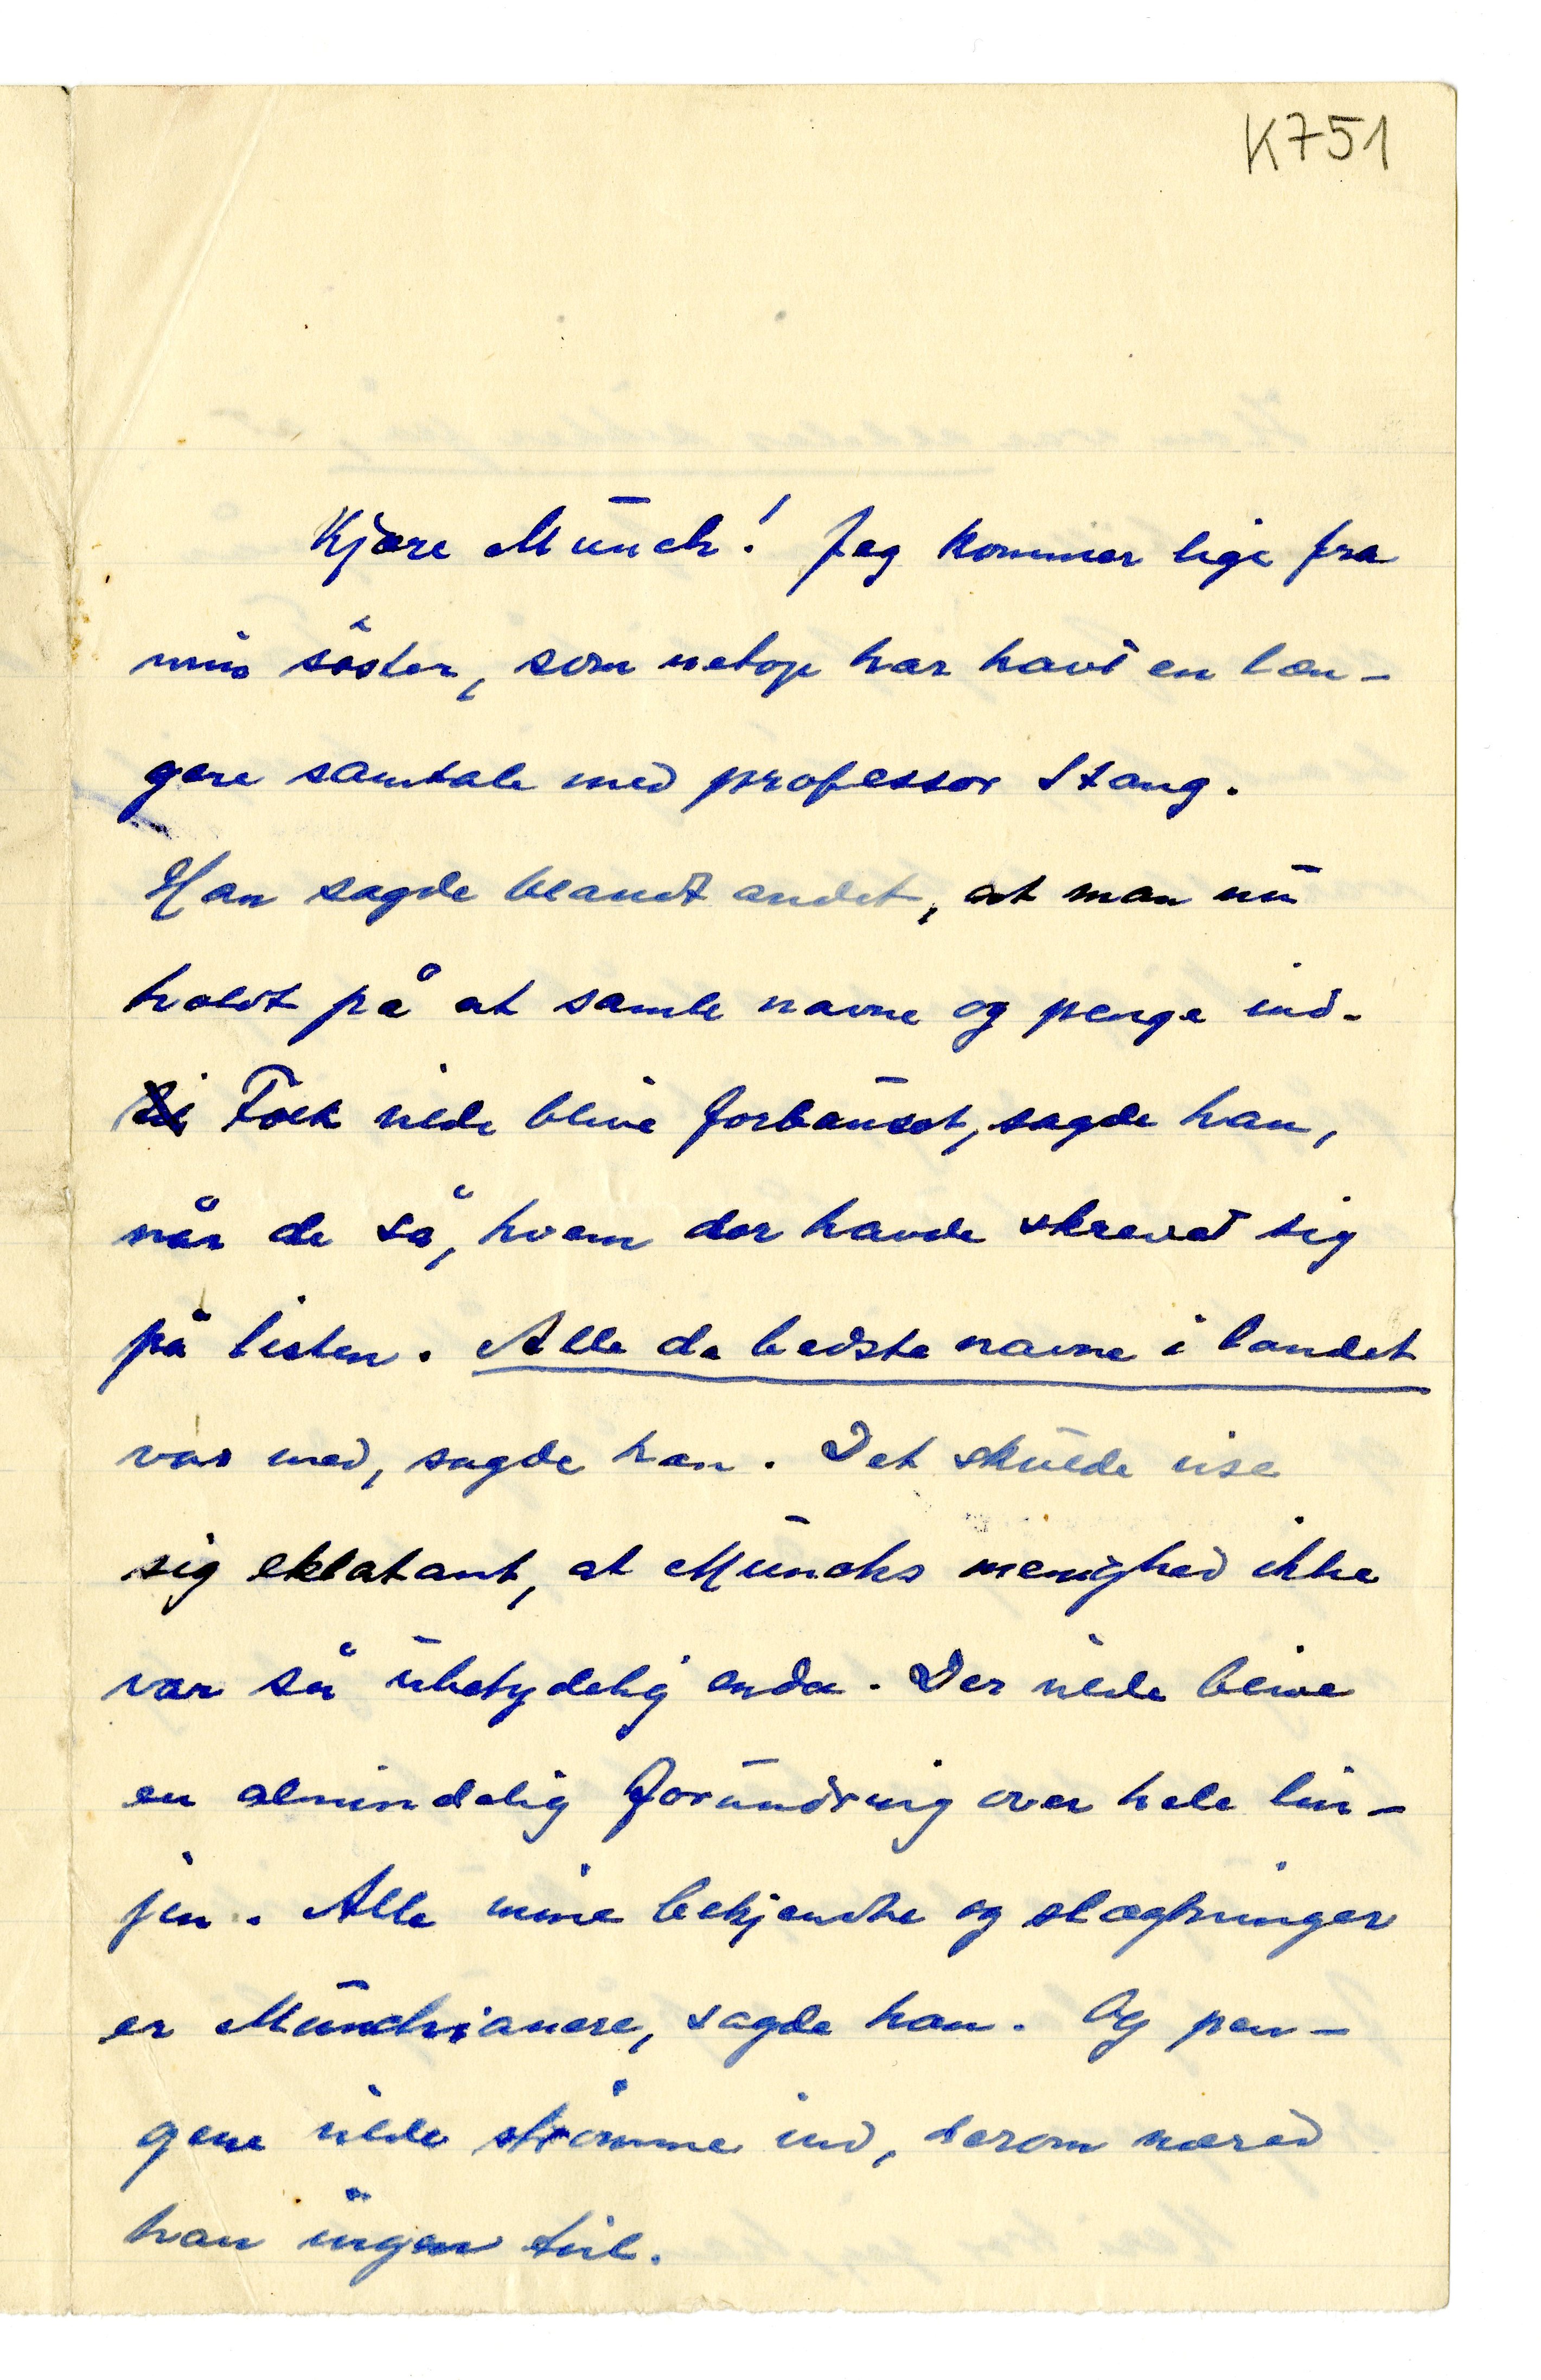 K751
Kjære Munch! Jeg kommer lige fra
min søster, som netop har havt en læn-
gere samtale med professor Stang.
Han sagde blandt andet, at man nu
holdt på at samle navne og penge ind.
Folk vilde blive forbauset, sagde han,
når de så, hvem der havde skrevet sig
på listen. Alle de bedste navne i landet
var med, sagde han. Det skulde vise
sig eklatant, at Munchs menighed ikke
var så ubetydelig enda. Der vilde blive
en almindelig forundring over hele lin-
jen. Alle mine bekjendte og slægtninger
er Munchianere, sagde han. Og pen-
gene vilde strømme ind, derom næred
han ingen tvil.